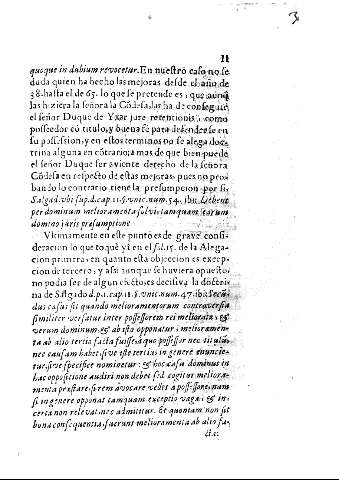 3
11
quoque in dubium revocetur. En nuestro caso no se
duda quien ha hecho las mejoras desde el año de
38. hasta el de 65. lo que se pretende es, que aunq̃
las hiziera la señora la Cõdesa, las ha de conseguir
el señor Duque de Yxar jure retentionis, como
posseedor cõ titulo, y buena fè para defenderse en
su possession, y en estos terminos no se alega doc-
trina alguna en cõtrario, mas de que bien puede
el señor Duque ser aviente derecho de la señora
Cõdesa en respecto de estas mejoras, pues no pro-
bando lo contrario tiene la presumpcion por si.
Salgad. vbi sup. d. cap. 11. §. vnic. num. 54. ibi: Licbent
per dominum melioramenta solvi, tamquam eorum
domino juris presumptione
Vltimamente en este punto es de grave consi-
deracion lo que toquè yà en el fol. 15. de la Alega-
cion primera, en quanto esta objecion es excep-
cion de tercero, y assi aunque se huviera opuesto,
no podia ser de algun efecto, es decisiva la doctri-
na de Salgado d. p. 1. cap. 11. §. vnic. num. 47. ibi: Secũ-
dus casus sit quando melioramentorum controversia
similiter versatur inter possessorem rei melioratæ, &
verum dominum, & ab isto opponatur, melioramen-
ta ab alio tertio facta fuisse, à quo possessor nec titulũ,
nec causam habet, sive iste tertius in genere enuncie-
tur, sive specificè nominetur: & hoc casu dominus in
hac oppositione audiri non debet sed cogitur meliora-
menta præstare, si rem avocare velit à possessore, nam
si in genere opponat tamquam exceptio vaga, & in-
certa non relevat, nec admittitur. Et quoniam non sit
bona consequentia, fuerunt melioramenta ab alio fa-
cta: